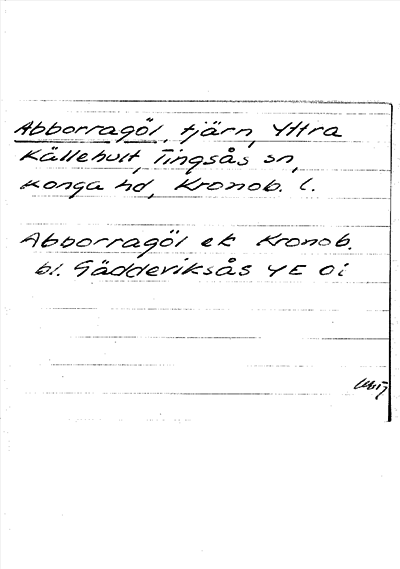 Abborragöl, tjärn, Yttra
Källehult, Tingsås sn,
Konga hd, Kronob. l.
Abborragöl ek Kronob.
bl. Gädderiksås 4E 0i